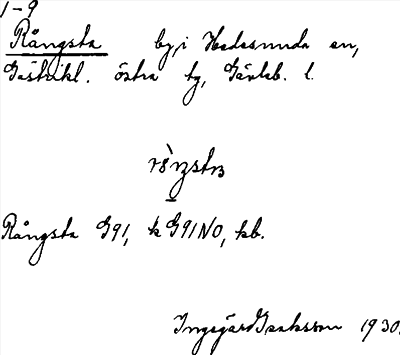 1-9
Rångsta by i Hedesunda sn,
Gästrikl. östra tg, Gävleb. l.
Rångsta G91, k G91NO, kb.
Ingegärd Isaksson 1930.